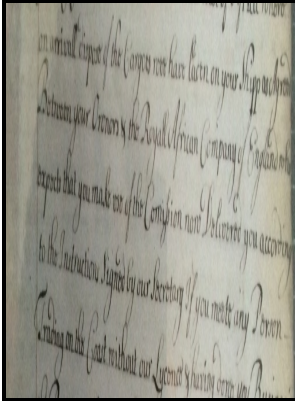 on arrivall dispose of the Cargoe wee have Laden on your Shipp
Between your Owners & the Royall African Company of England who
expects that you make use of the Comission now Delivered you according
to the Instructions Signed by our Secretary. If you meete any Person
Trading on the Coast without our Lycence & haveing done you